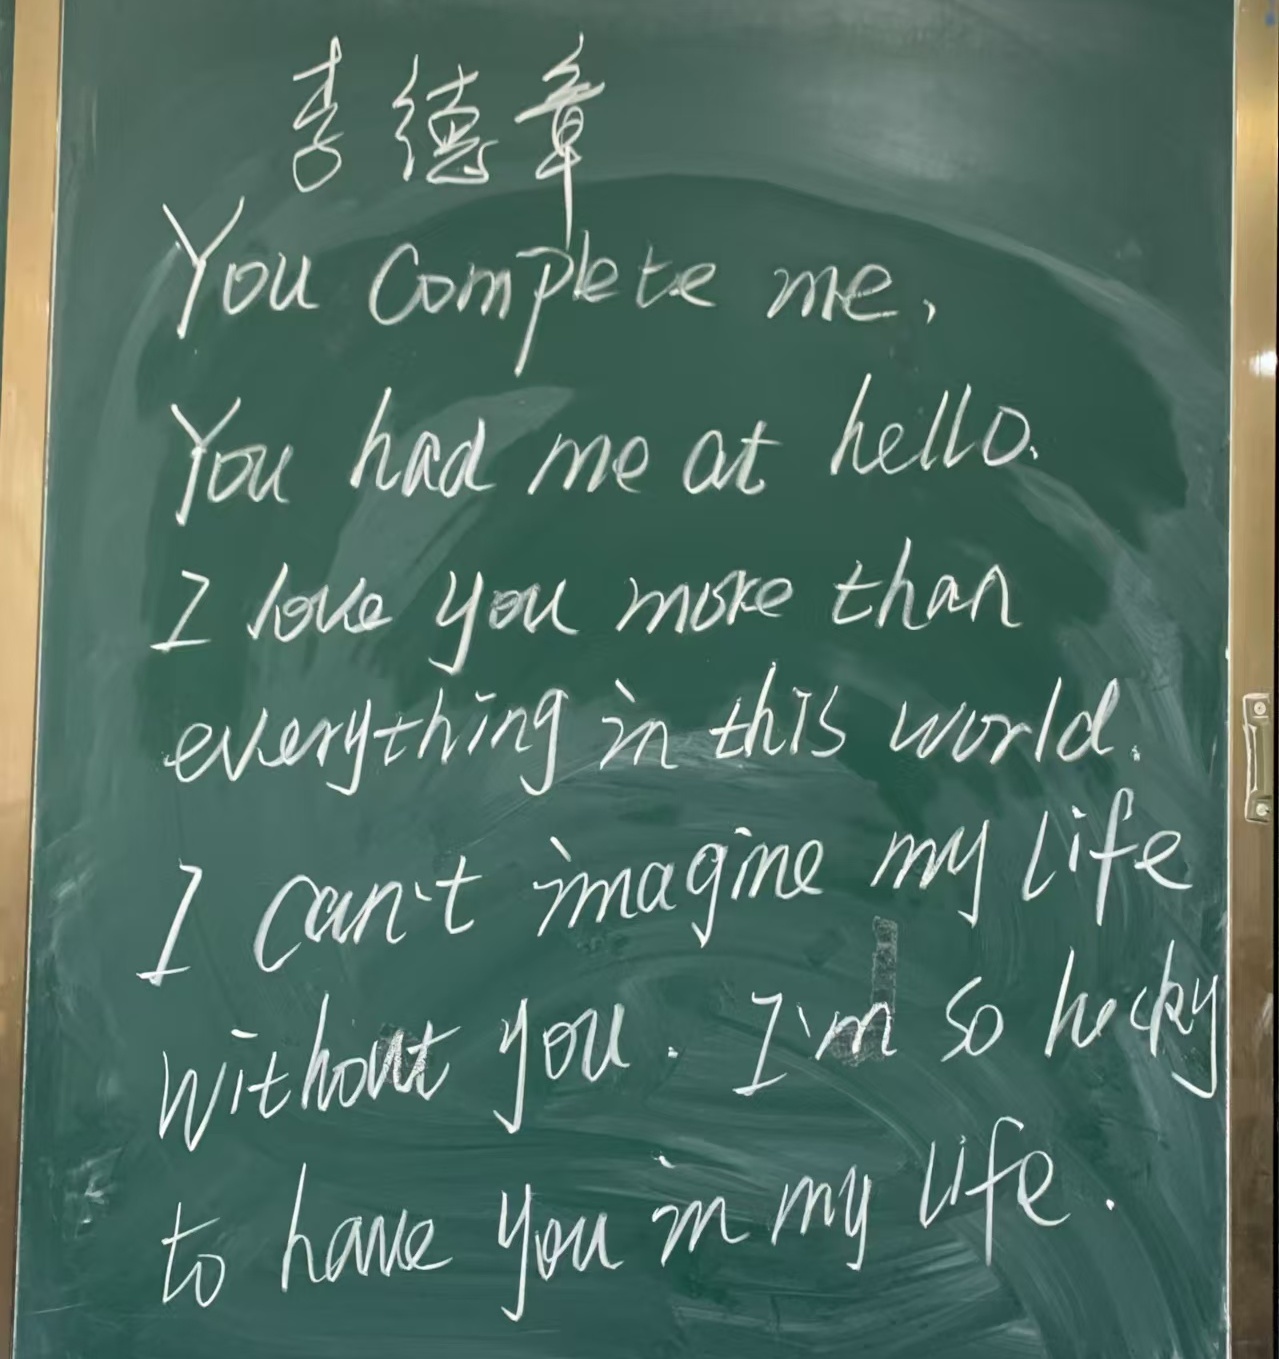 李德章
You complete me,
You had me at hello.
I love you more than
everything in this world.
I can't imagine my life
without you. I'm so lucky
to have you in my life.